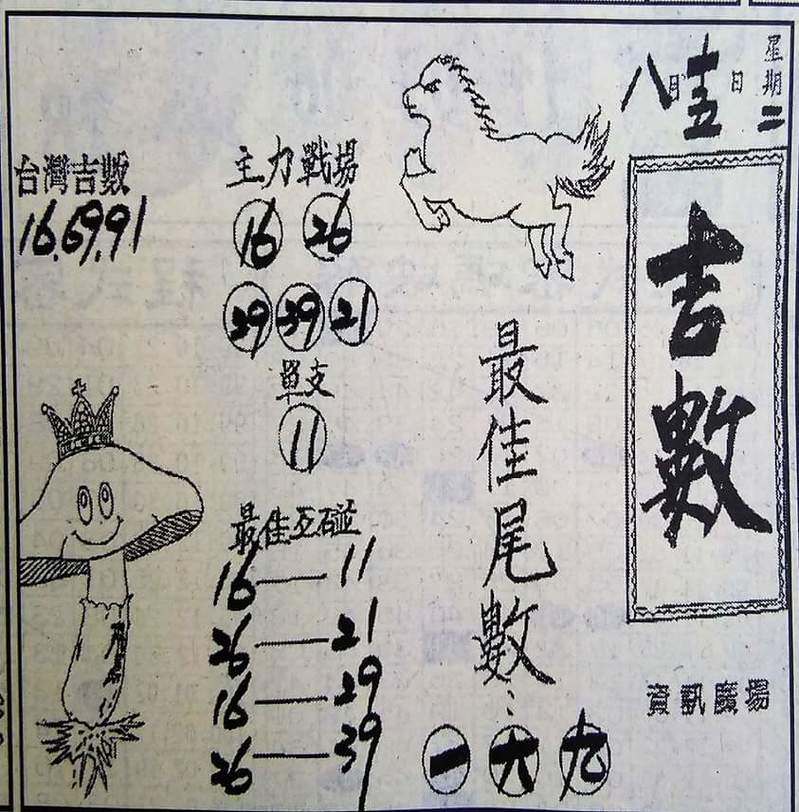 星期二
八月十五日
吉數
資訊廣場
最佳尾數：
一 六 九
主力戰場
16 26
29 39 21
單支
11
最佳互碰
16——11
26——21
16——29
26——39
台灣吉數
16.69.91